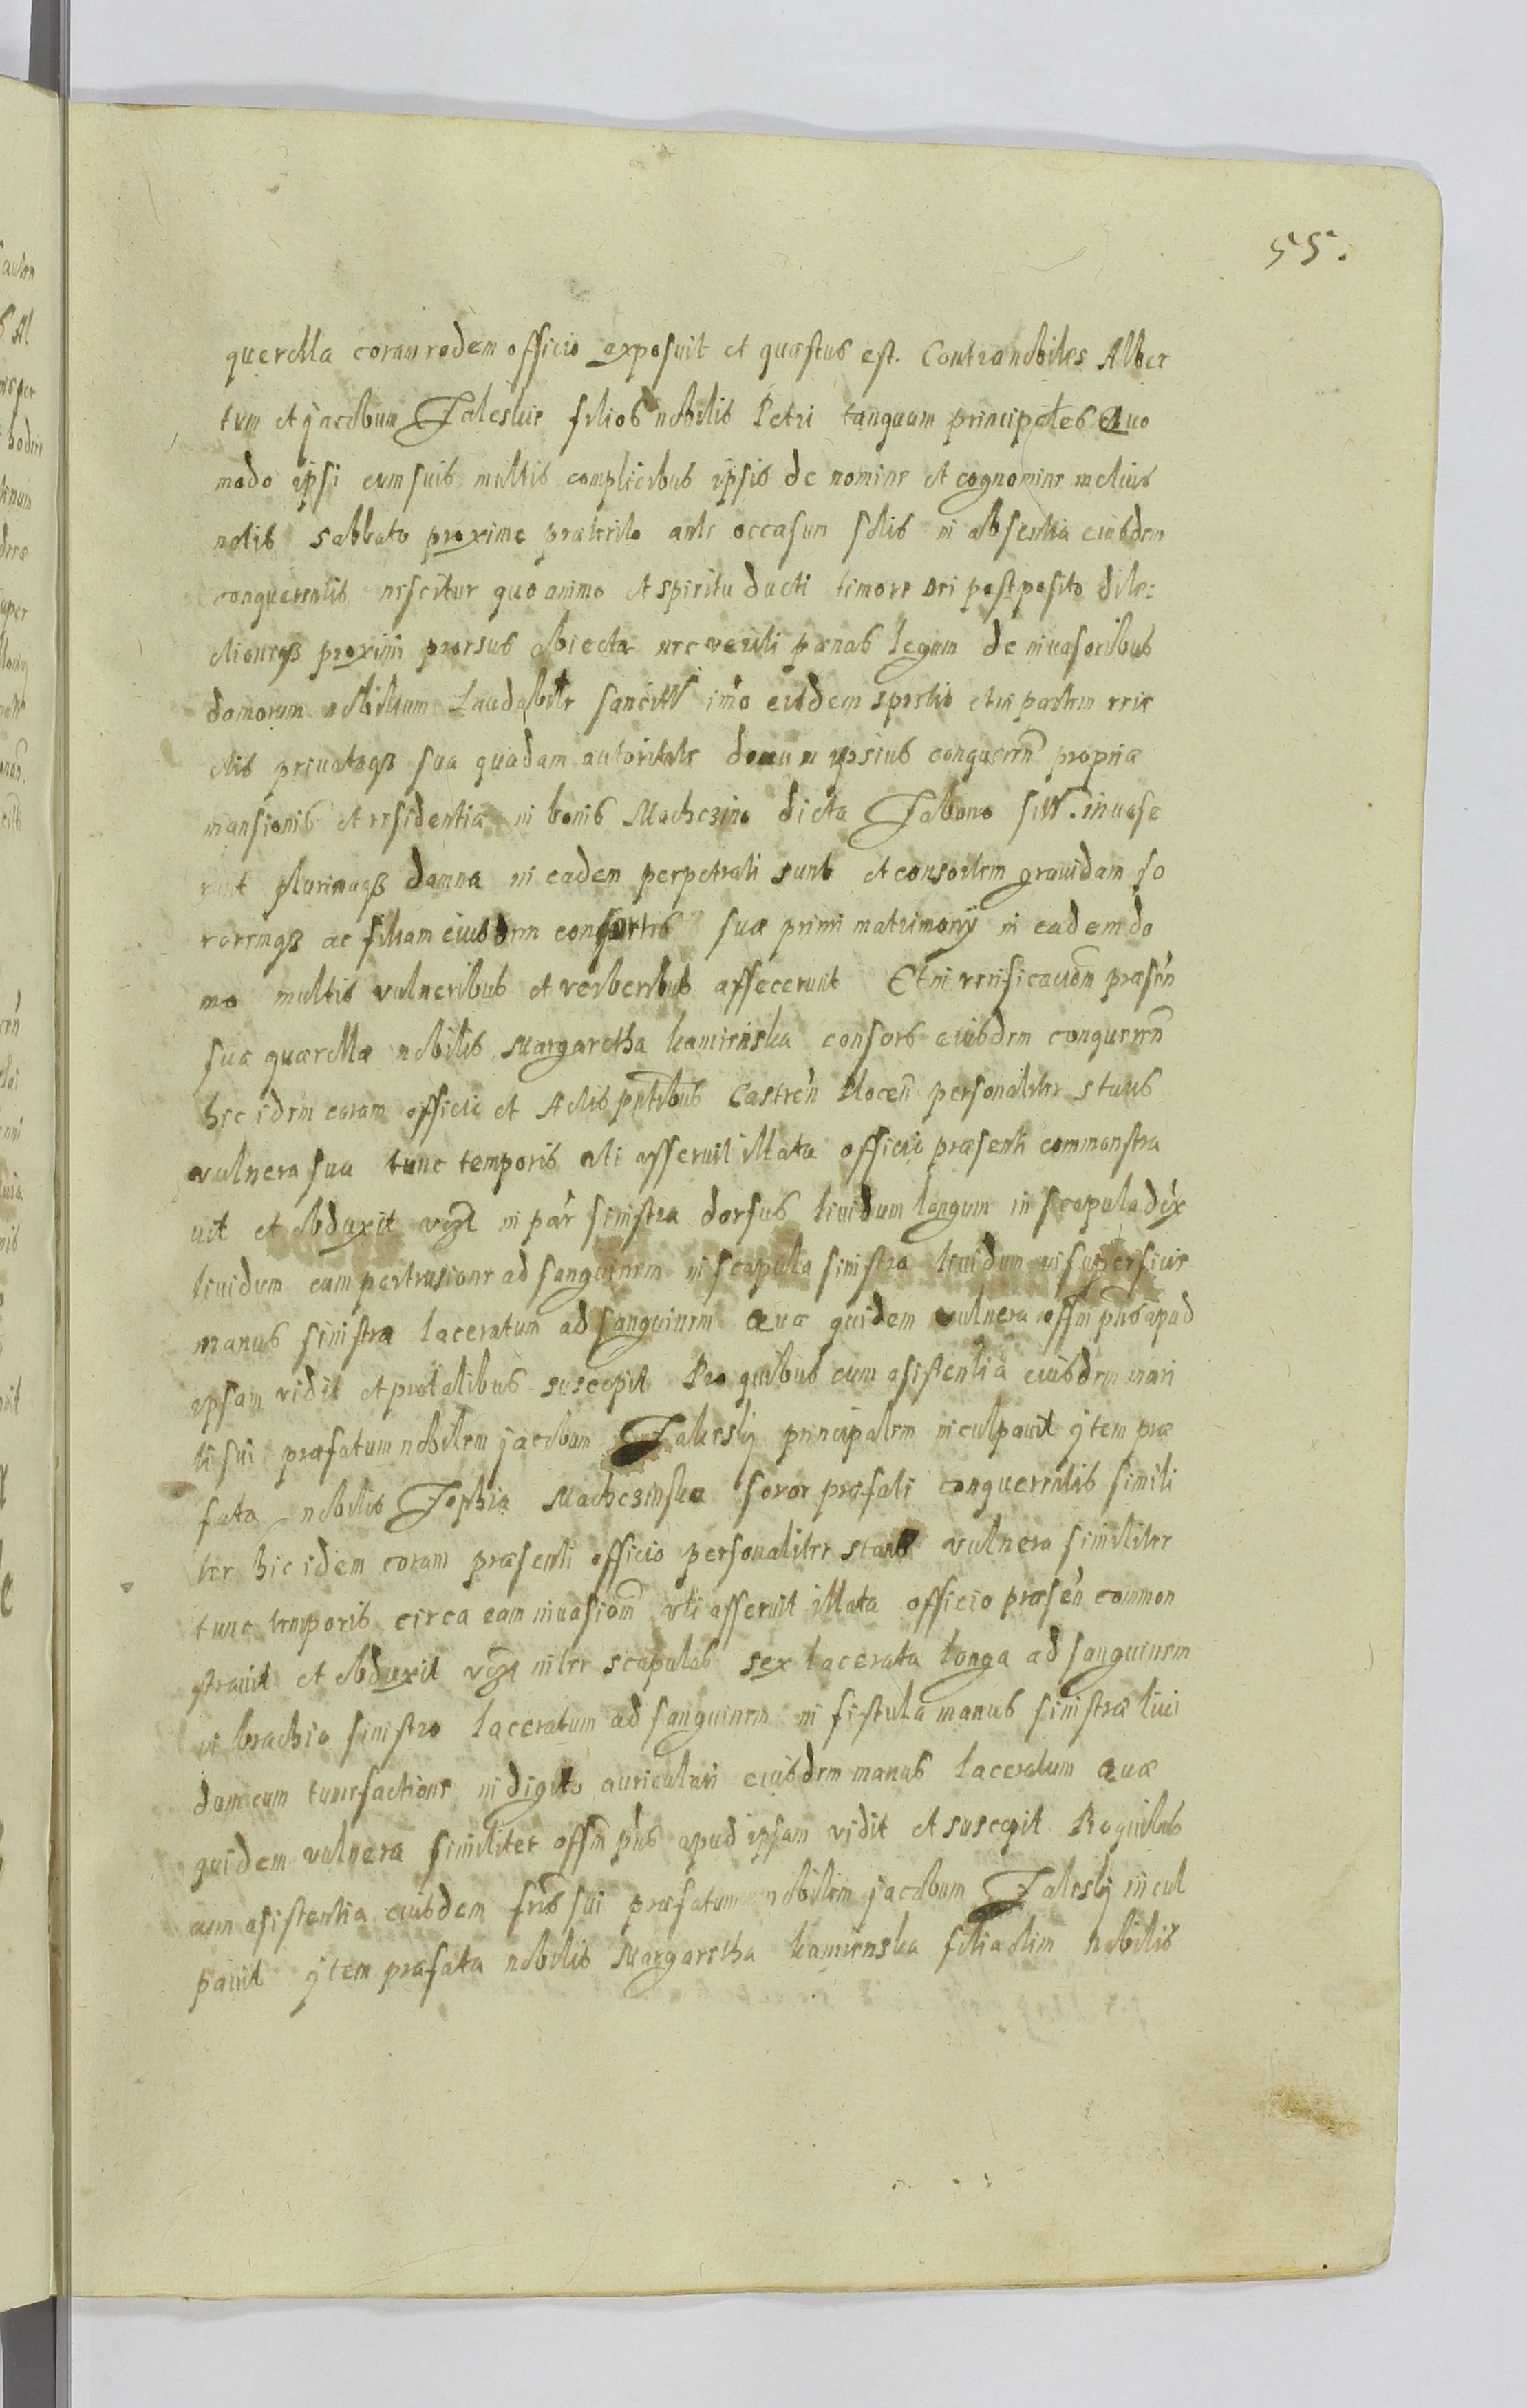 55.
querella coram eodem officio exposuit et quæstus est. Contra nobiles Alber
tum et jacobum Zaleskie filios nobilis Petri tanquam principales Quo
modo ipsi cum suis multis complicibus ipsis de nomine et cognomine melius
notis sabbato proxime præterito ante occasum solis in absentia eiusdem
conquerentis nescitur quo animo et spiritu ducti timore Dei postposito dile:
ctioneqȝ proximi prorsus abiecta nec veriti pœnas legum de inuasoribus
domorum nobilium laudabiliter imo eisdem spretis et in partem reie
ctis priuataqȝ sua quadam autoritate domum ipsius conqueren̄ propriæ
mansionis et residentiæ in bonis Machczino dicta Zabono inuase
runt plurimaqȝ damna in eadem perpetrati sunt et consortem grauidam so
roremqȝ ac filiam eiusdem consortis suæ primi matrimonij in eadem do
mo multis vulneribus et verberibus affecerunt Et in verificatiōem præsen̄
suæ quærellæ nobilis Margaretha kamienska consors eiusdem conqueren̄
hic idem coram officio et Actis pn̄tibus Castren̄ Plocen̄ personaliter stans
vulnera sua tunc temporis uti asseruit illata officio præsenti commonstra
uit et obduxit vizt in par̄ sinistra dorsus liuidum longum in scapula dex̄
liuidum cum pertrusione ad sanguinem in scapula sinistra liuidum in superficie
manus sinistræ laceratum ad sanguinem Quæ quidem vulnera off̄m pn̄s apud
ipsam vidit et pro talibus suscepit Pro quibus cum asistentia eiusdem mari
ti sui præfatum nobilem jacobum Zaleskij principalem inculpauit jtem præ
fata nobilis Zophia Machczinska soror præfati conquerentis simili
ter hic idem coram præsenti officio personaliter stans vulnera similiter
tunc temporis circa eam inuasiōm uti asseruit illata officio præsen̄ common
strauit et obduxit vizt inter scapulas sex lacerata longa ad sanguinem
in brachio sinistro laceratum ad sanguinem in fistula manus sinistræ liui
dum cum tumefactione in digito auriculari eiusdem manus laceratum Quæ
quidem vulnera similiter off̄m pn̄s apud ipsam vidit et suscepit Pro quibus
cum asistentia eiusdem fr̄is sui præfatum nobilem jacobum Zaleskij incul
pauit jtem præfata nobilis Margaretha kamienska filia olim nobilis